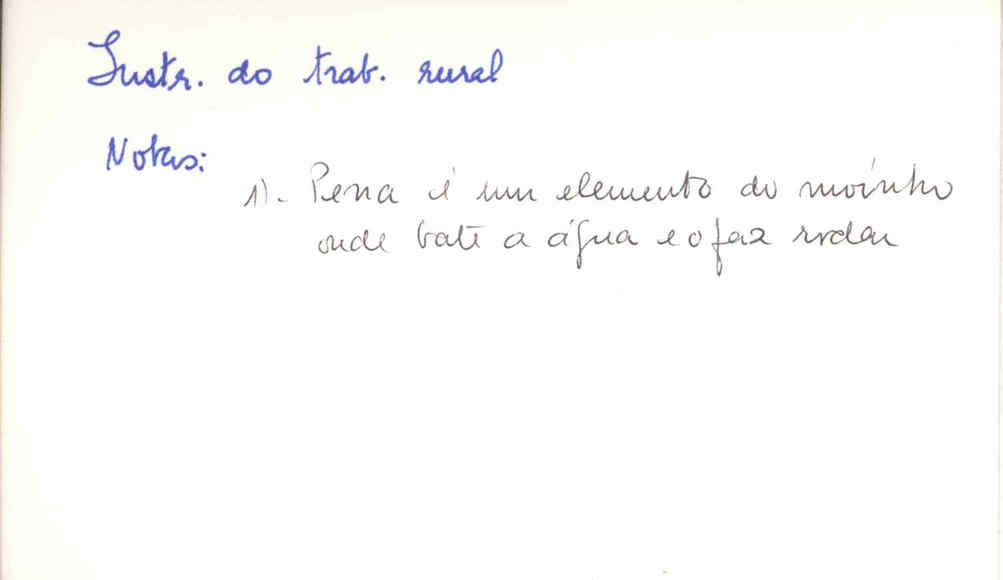 Instr. do trab. rural
Notas:
1). Pena é um elemento do moínho
onde bate a água e o faz rodar